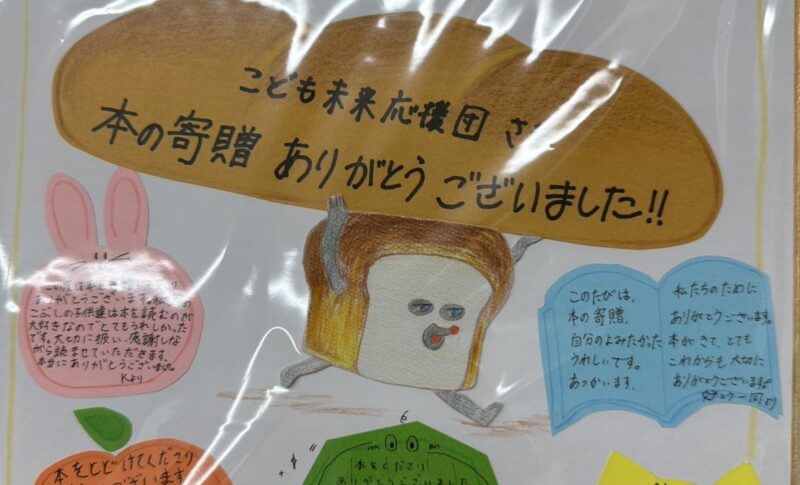 こども未来応援団
本の寄贈 ありがとうございました!!
ありがとうございます。
こぶしの子供達は本を読むのが
大好きなのでとてもうれしかった
です。大切に扱い、感謝しな
がら読ませていただきます。
本当にありがとうございました。
Kより
このたびは、
本の寄贈、
自分のよみたかった
うれしいです。
あつかいます。
私たちのために
ありがとうございます。
本がきて、とても
これからも大切に
ありがとうございます。
本をとどけてくださり
本をくださり
ありがとうございました